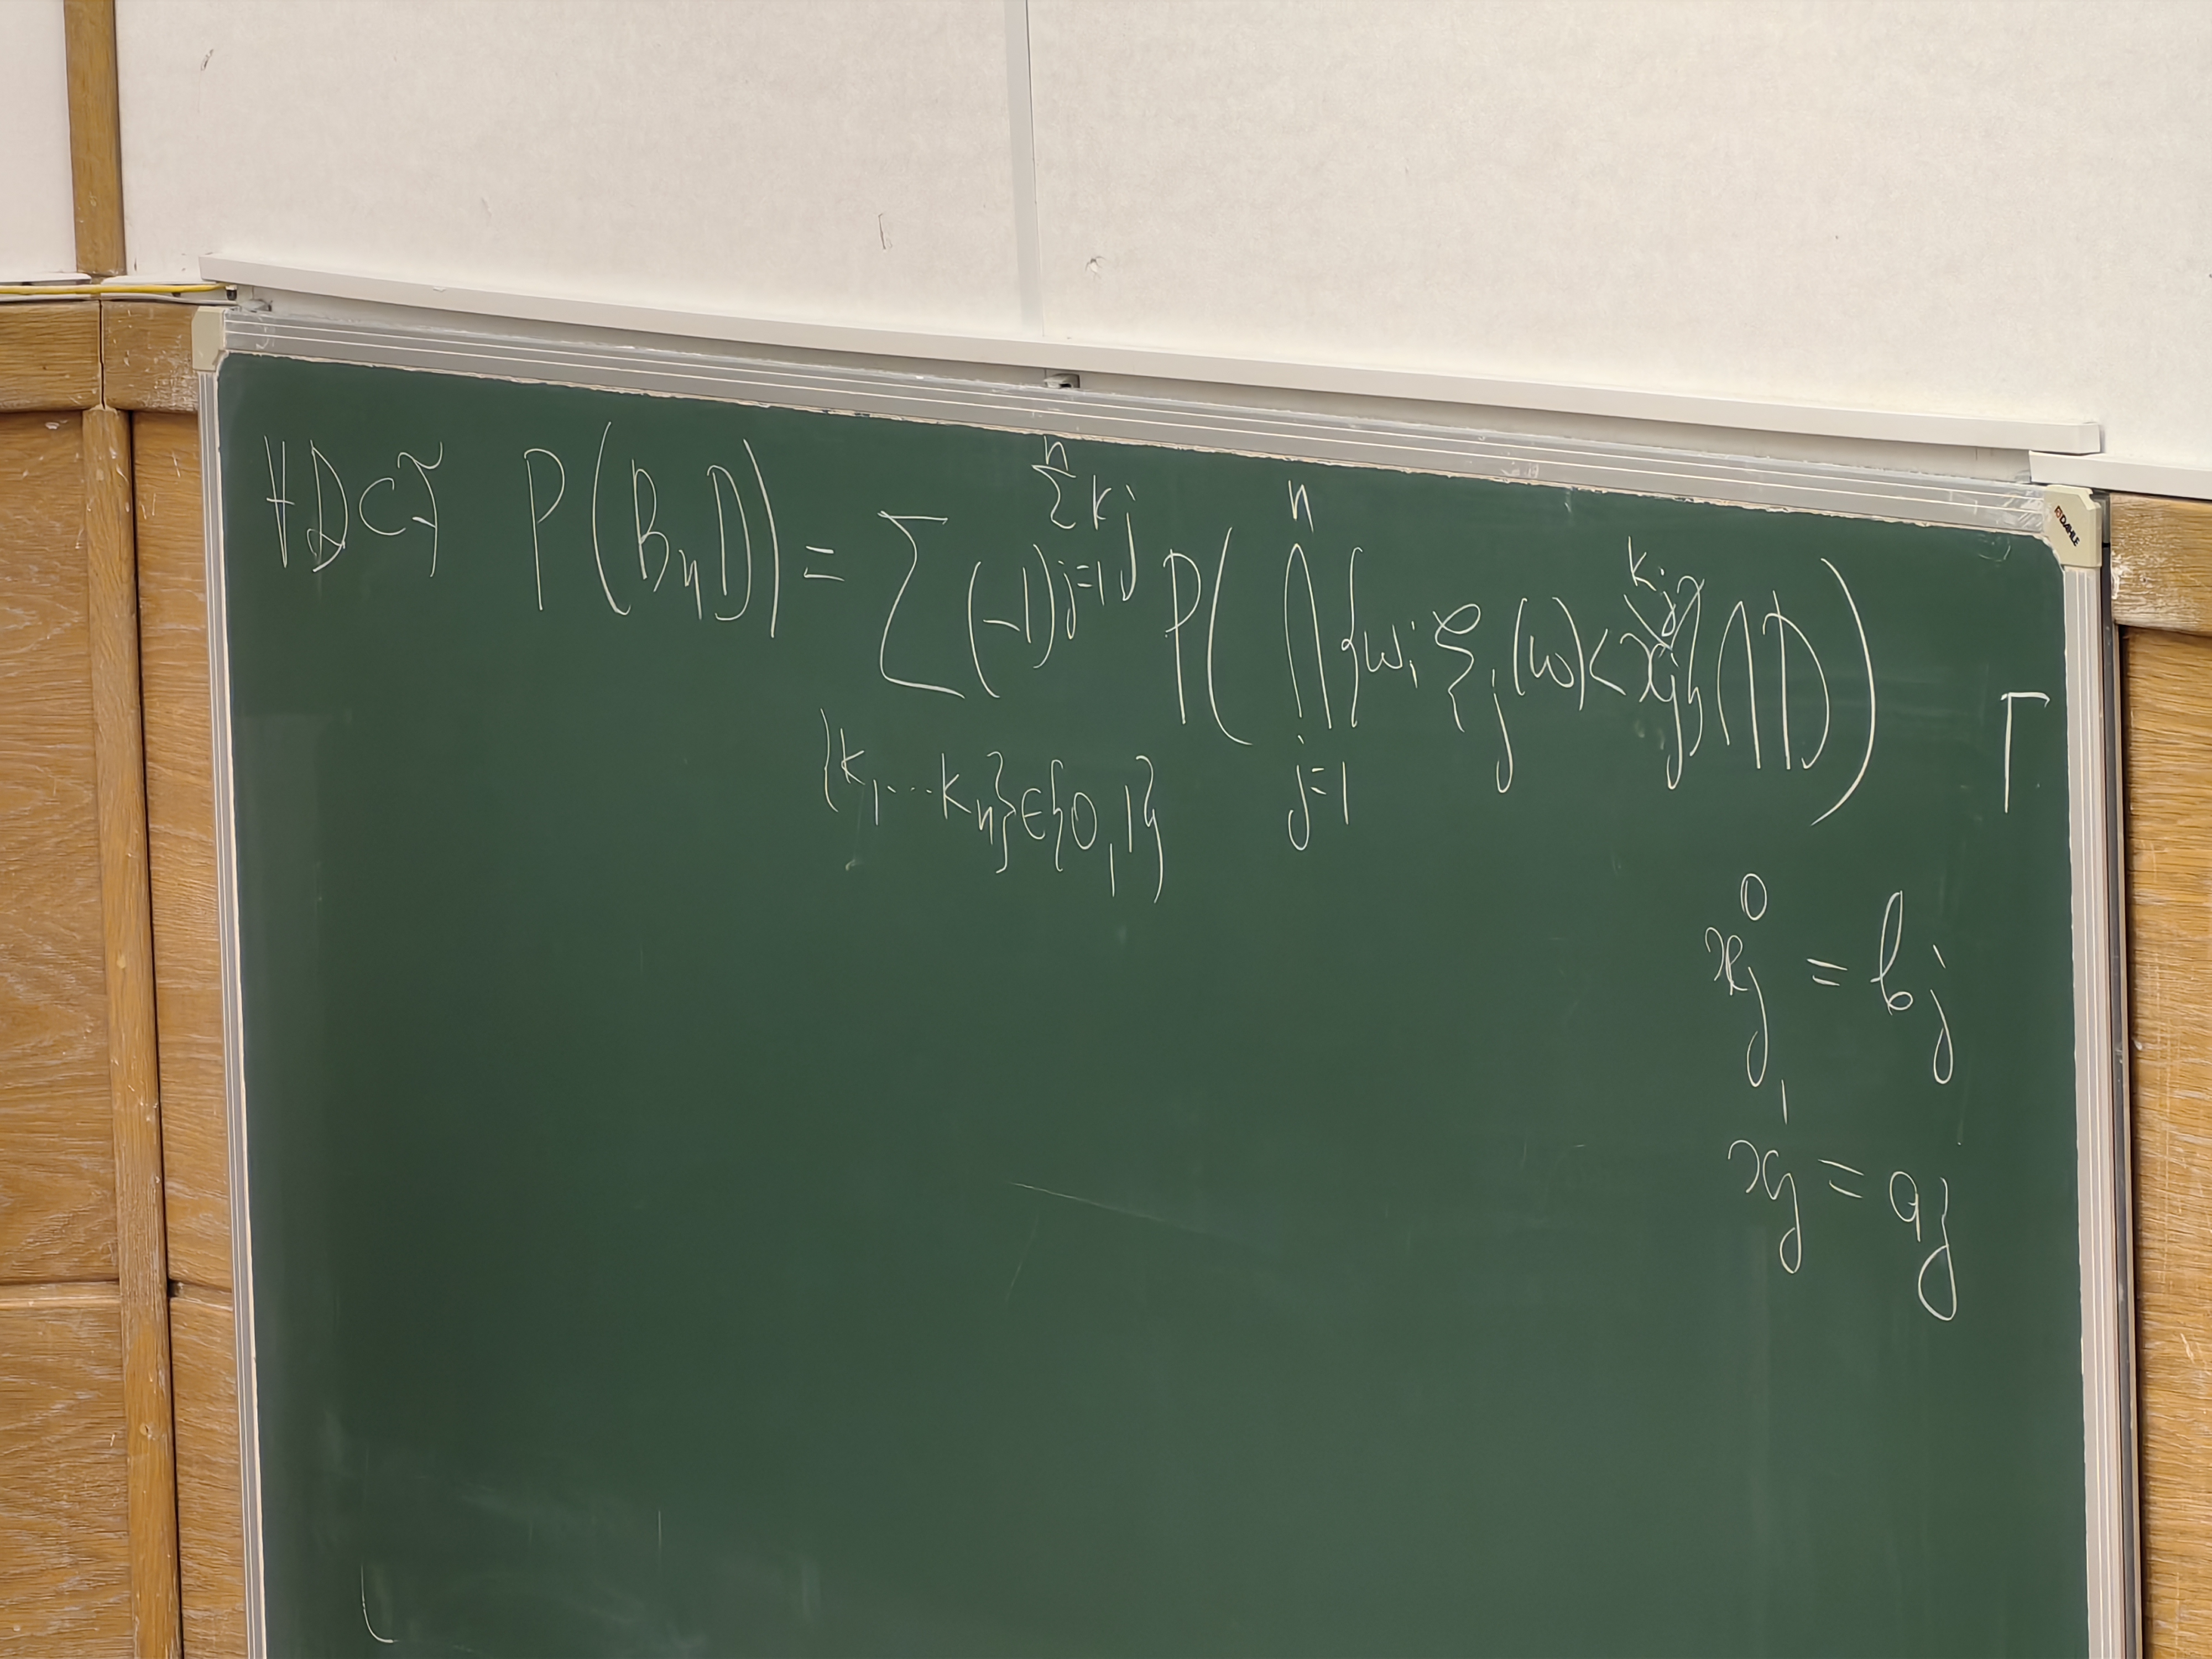 ∀D⊂ℱ P(BₙD) = ∑_{{k₁...kₙ}∈{0,1}} (-1)^{∑_{j=1}^{n} kⱼ} P(⋂_{j=1}^{n} {ω: ξⱼ(ω) < xⱼ^{kⱼ}} ⋂ D) Γ
xⱼ⁰ = bⱼ
xⱼ¹ = aⱼ
DAHLE